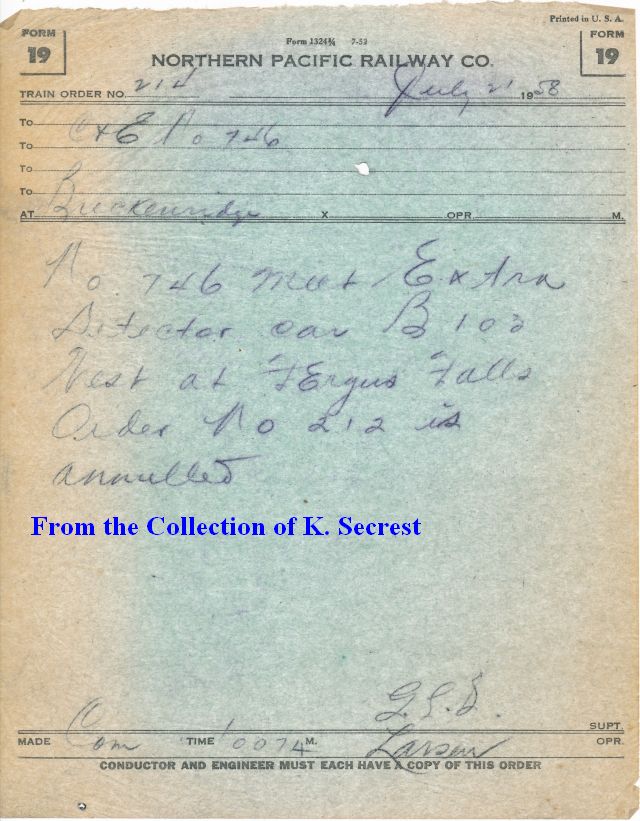 Printed in U. S. A.
FORM 19
Form 1324¾ 7-52
FORM 19
NORTHERN PACIFIC RAILWAY CO.
TRAIN ORDER NO. 214 July 21 1958
To C & E No 746
To
To
To
AT Breckenridge X OPR. M.
No 746 meet Extra
Detector car B 103
West at Fergus Falls
Order No 212 is
annulled
From the Collection of K. Secrest
G.E.S.
SUPT.
MADE Com TIME M. Larson OPR.
CONDUCTOR AND ENGINEER MUST EACH HAVE A COPY OF THIS ORDER